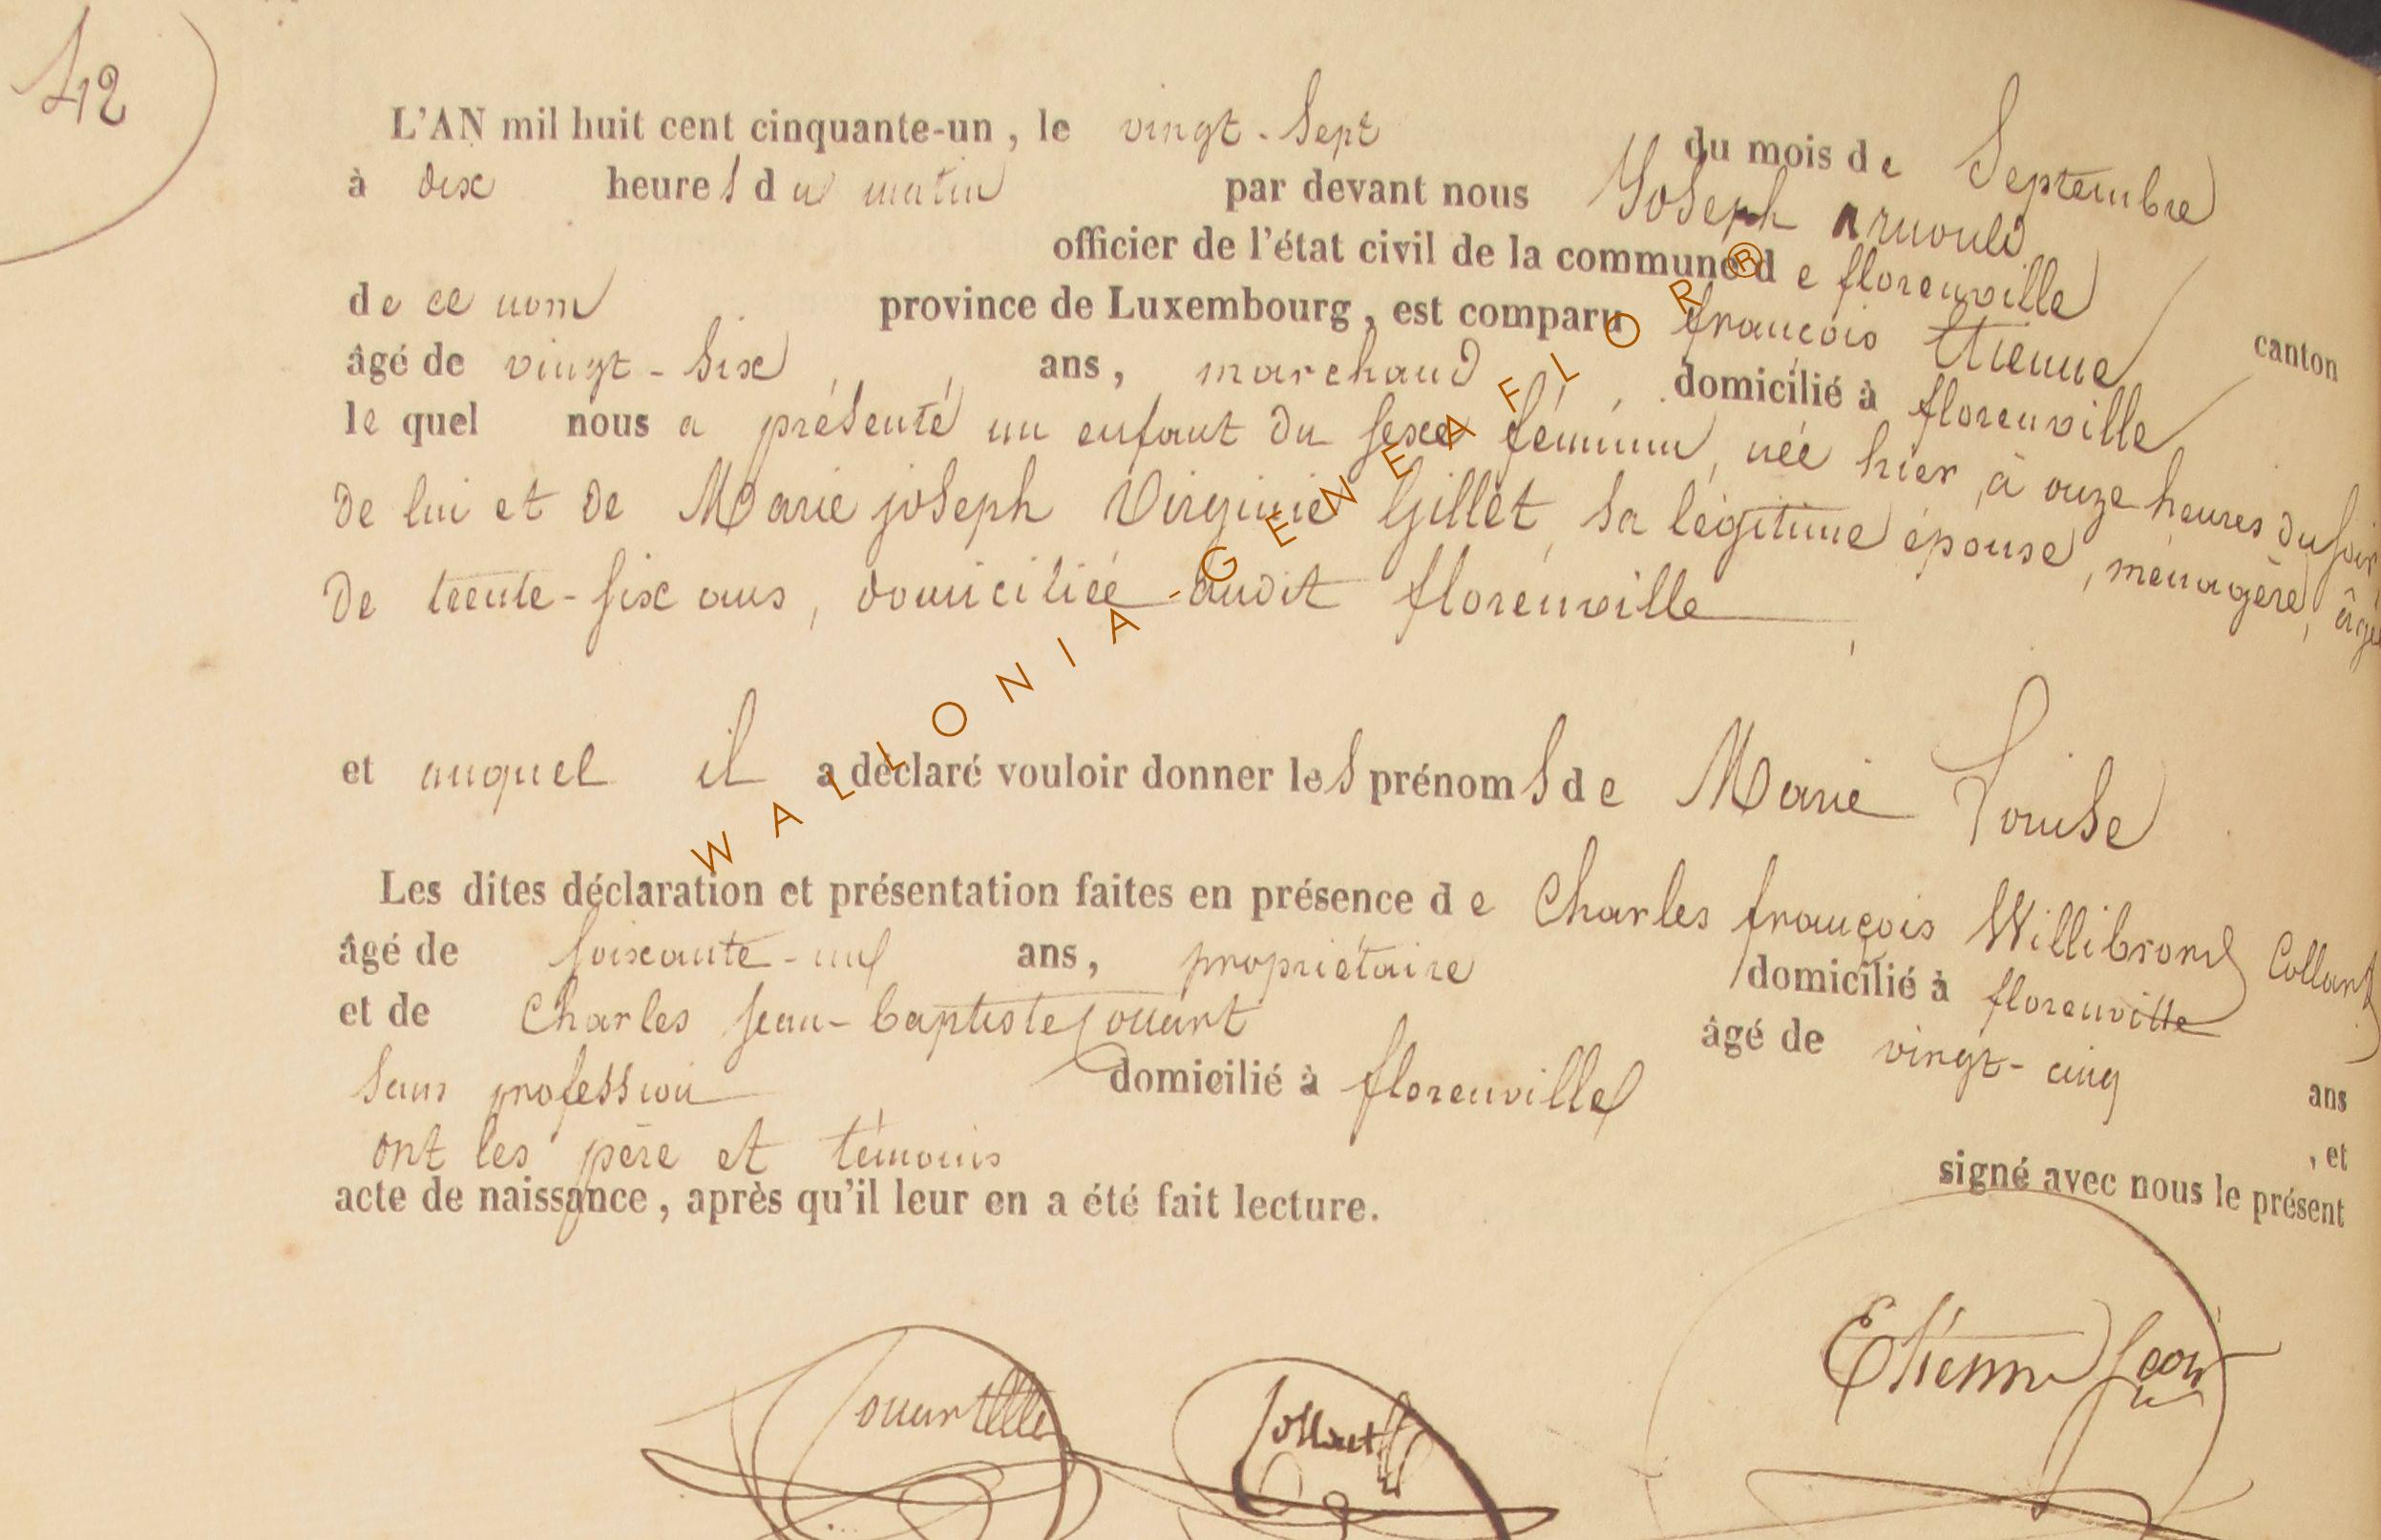 42
L'AN mil huit cent cinquante-un, le vingt-sept du mois de Septembre
à dix heures du matin par devant nous Joseph Arnould
officier de l'état civil de la commune de florenville canton
de ce nom province de Luxembourg, est comparu françois Etienne
âgé de vingt-six ans, marchand domicilié à florenville
le quel nous a présenté un enfant du sexe féminin, née hier, à onze heures du soir,
de lui et de Marie joseph Virginie Gillet, sa légitime épouse, ménagère, âgé
de trente-six ans, domiciliée audit florenville
et auquel il a déclaré vouloir donner les prénoms de Marie Louise
Les dites déclaration et présentation faites en présence de Charles françois Willibrord Collart
âgé de soixante-neuf ans, propriétaire domicilié à florenville
et de Charles Jean-baptiste Jouart âgé de vingt-cinq ans
sans profession domicilié à florenville , et
ont les père et témoins signé avec nous le présent
acte de naissance, après qu'il leur en a été fait lecture.
Etienne
Collart
WALLONIA-GENEAFLOR®